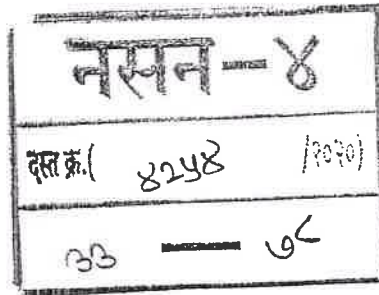 नसन-४
दस्त क्र.( ४२५४ /२०२०)
33 — ७८